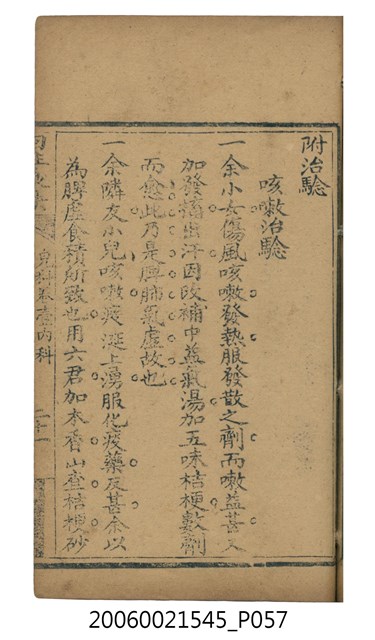 附治驗
咳嗽治驗
一余小女傷風咳嗽發熱服發散之劑而嗽益甚又
加發搐出汗因改補中益氣湯加五味桔梗數劑
而愈此乃是脾肺氣虛故也
一余隣友小兒咳嗽痰涎上湧服化痰藥反甚余以
為脾虛食積所致也用六君加木香山查桔梗砂
兒科卷壹內科
二十一
20060021545_P057